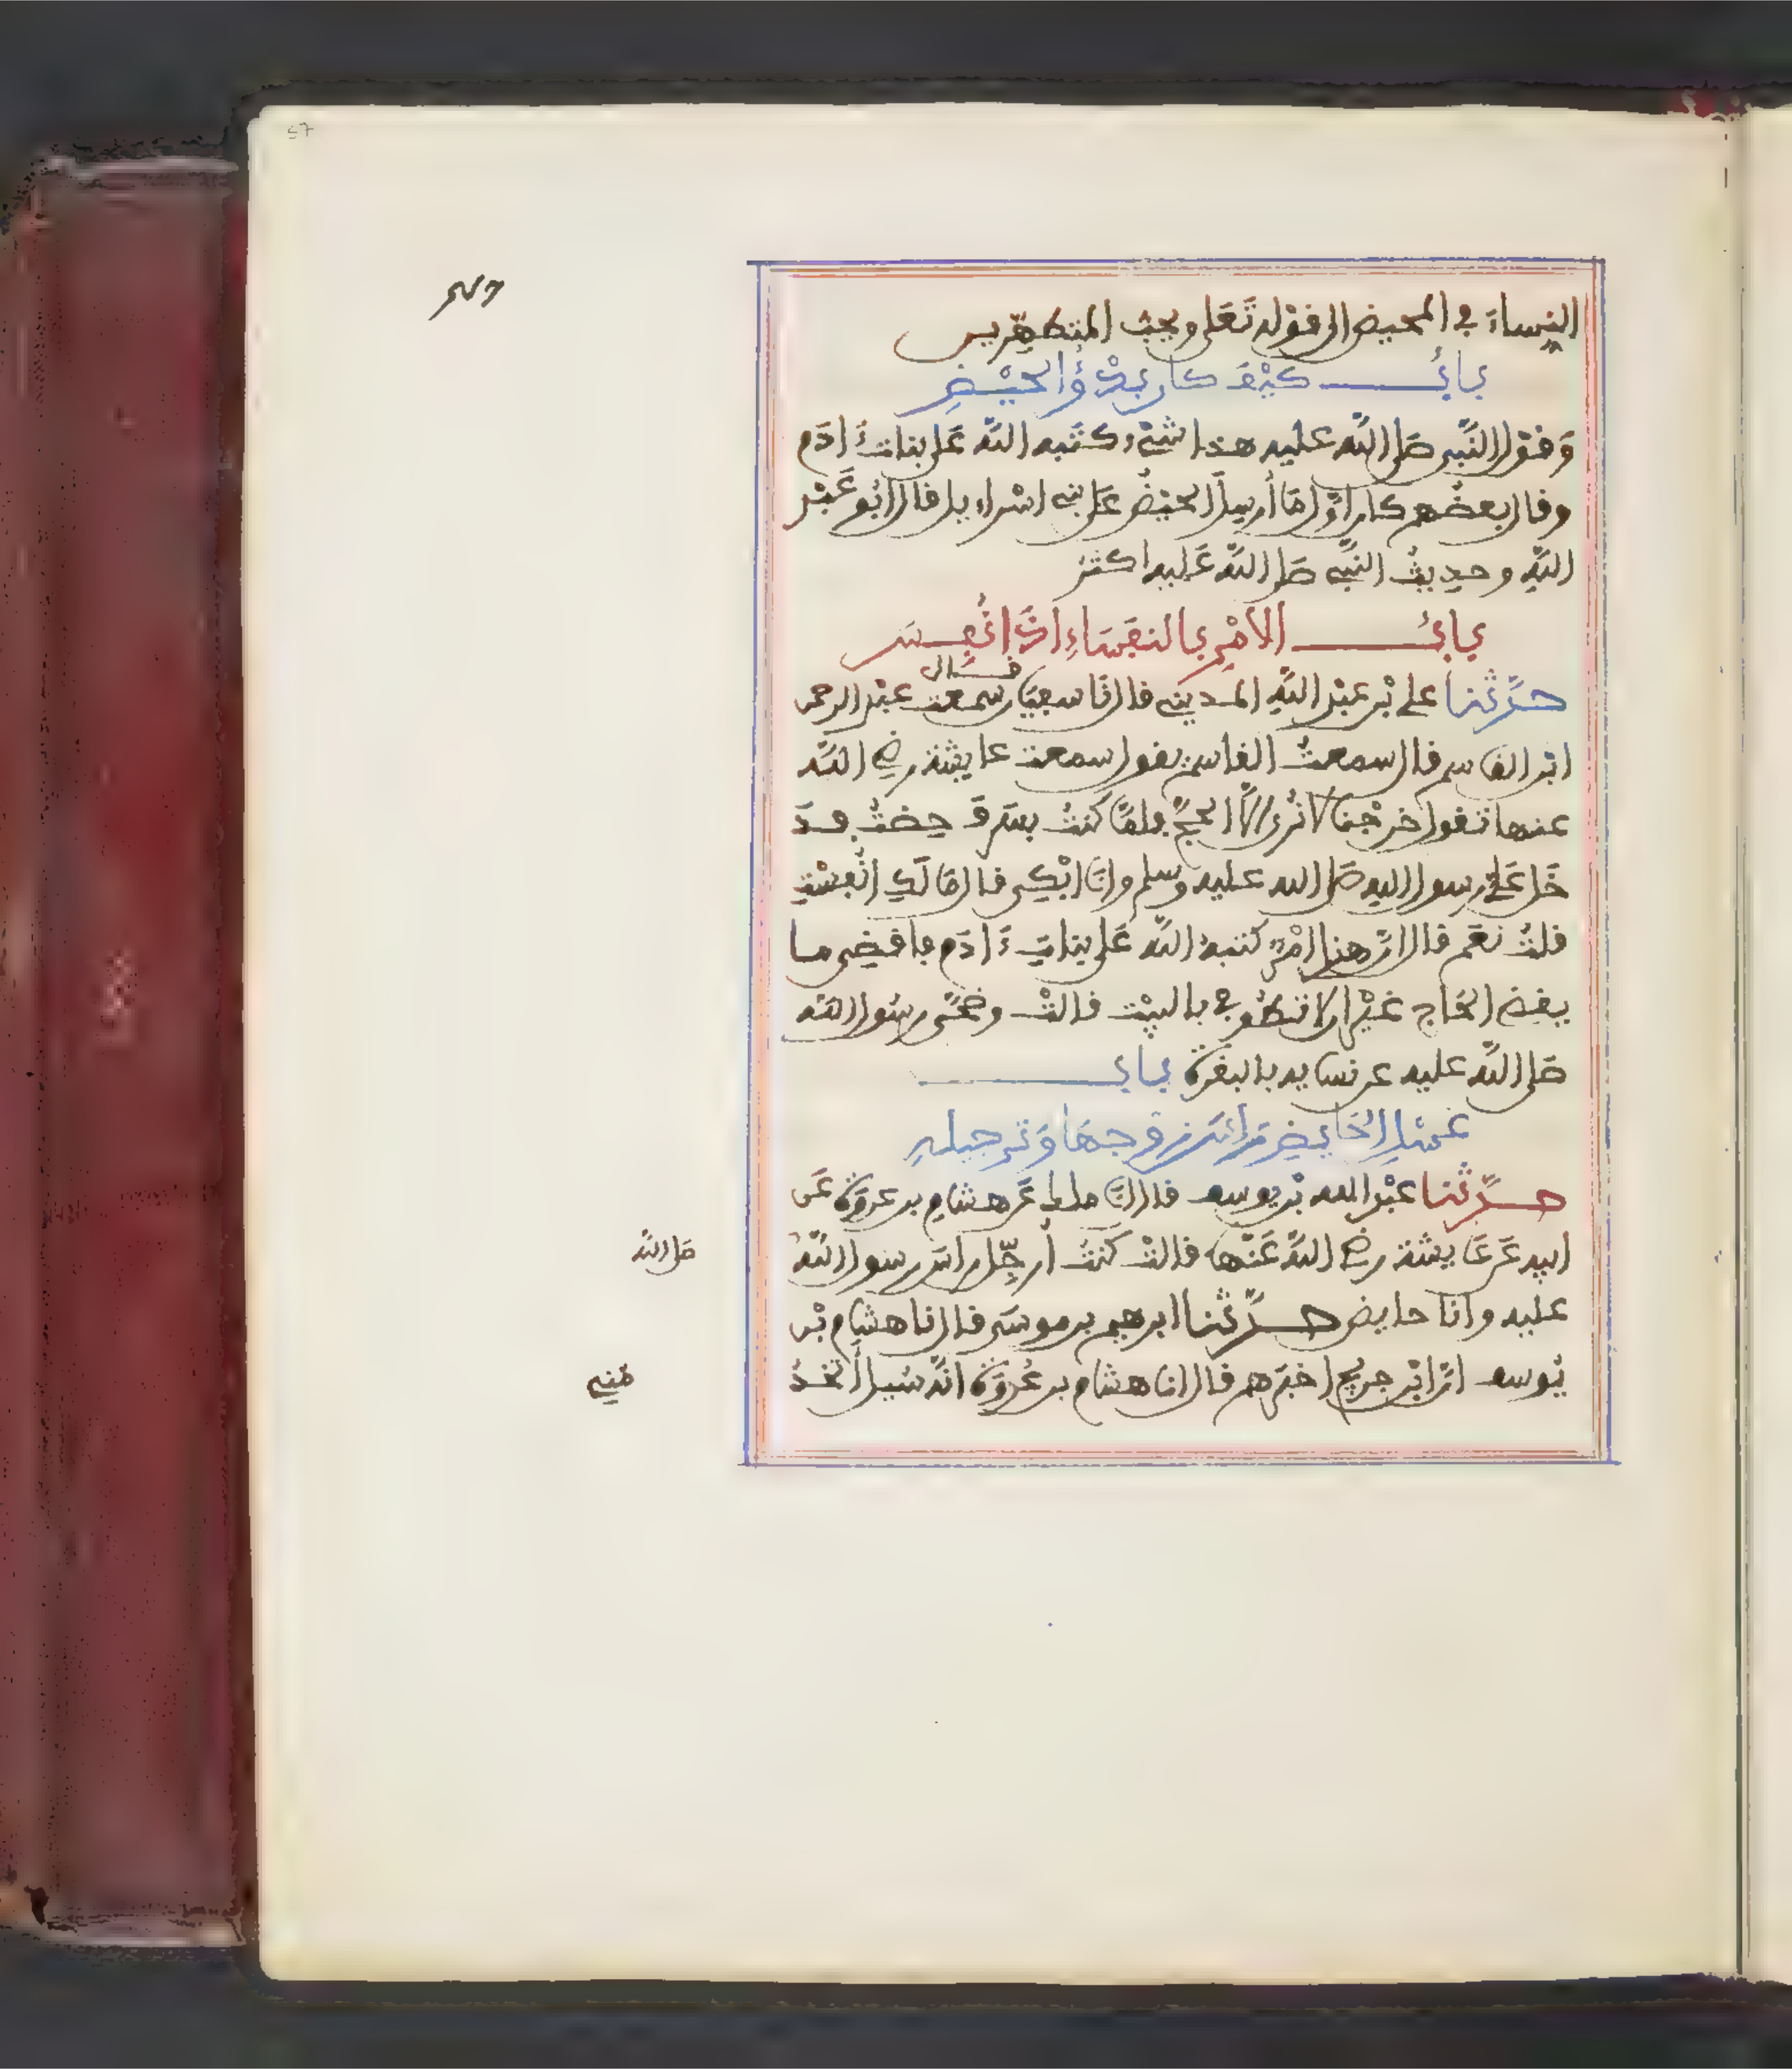 النِّساءَ في المحيض الى قوله تَعَلى ويحبّ المتطهّرين
بابُ كيْفَ كان بدْؤُ الحيْضِ
وَقوْل النَّبي صَلى اللَّه عليه هذا شيْء كتَبه اللَّه عَلى بنات ءَادَم
وقال بعضُهم كان اوَّل مَا أُرسِلَ الحيْضُ عَلى بني اسْراءيل قال ابُو عَبْدِ
اللَّهِ وحديثُ النَّبِي صَلى اللَّه عَليه اكثرُ
بابُ الامْرِ بالنفَسَاءِ اذَا نُفِسَت
حدَّثَنا علي بْن عبْد اللَّهِ المديني قال نَا سفيَان قال سمعت عبْد الرحمن
ابْن القاسم قال سمعتُ القاسم يقول سمعت عايشة رضي اللَّه
عنها تقول خرجْنا لا نُرى الَّا الحجَّ فلمَّا كنتُ بسَرفَ حِضتُ فدَ
خَل عَلَيَّ رسول الله صَلى الله عليه وسلم وانَا ابْكِي قال مَا لَكِ انُفِسْتِ
قلتُ نعَم قال انَّ هذا امْرٌ كتبهُ اللَّه عَلى بناتِ ءَادَم فاقضِي ما
يقضي الحَاج غيْر ان لا تطُوفي بالبيْت قالتْ وضحَّى رسُول اللَّه
صَلى اللَّه عليه عن نسايه بالبقرة باب
غسْلِ الحَايضِ رَأسَ زوجهَا وَترجيلهِ
حدَّثَنا عبْد الله بْن يوسف قال انَا ملك عَن هشامِ بن عروَة عَن
ابيه عَن عَايشة رضي اللَّه عَنْها قالتْ كنتُ أُرجِّل راسَ رسول اللَّه
صَلى اللَّه
عليه وانَا حايض حدَّثَنا ابرهيم بن موسَى قال انا هشام بْن
يُوسف انَّ ابْن جريج اخبَرَهم قال انا هشام بن عُروَة انَّه سُيلَ أَتخدُ
مُنِي